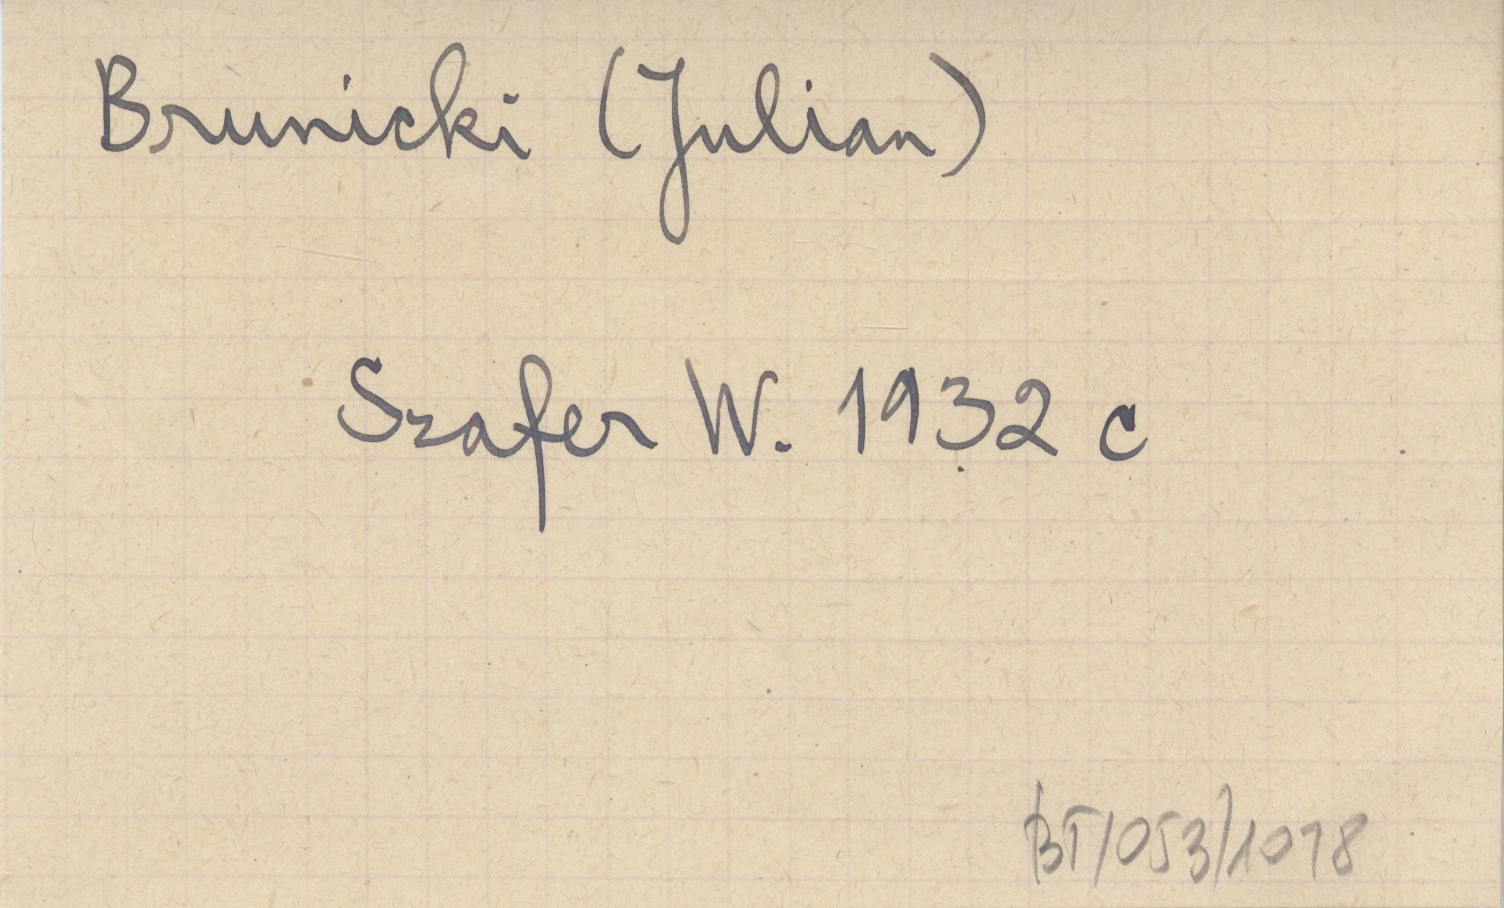 Brunicki (Julian)
Szafer W. 1932 c
BT/053/1078